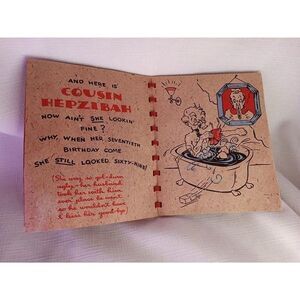 AND HERE IS
COUSIN
HEPZIBAH
NOW AIN'T SHE LOOKIN'
FINE?
WHY, WHEN HER SEVENTIETH
BIRTHDAY COME
SHE STILL LOOKED SIXTY-NINE!
(She was so gol-durn
ugly - her husband
took her with him
ever' place he went
so he wouldn't have
t' kiss her good-bye)